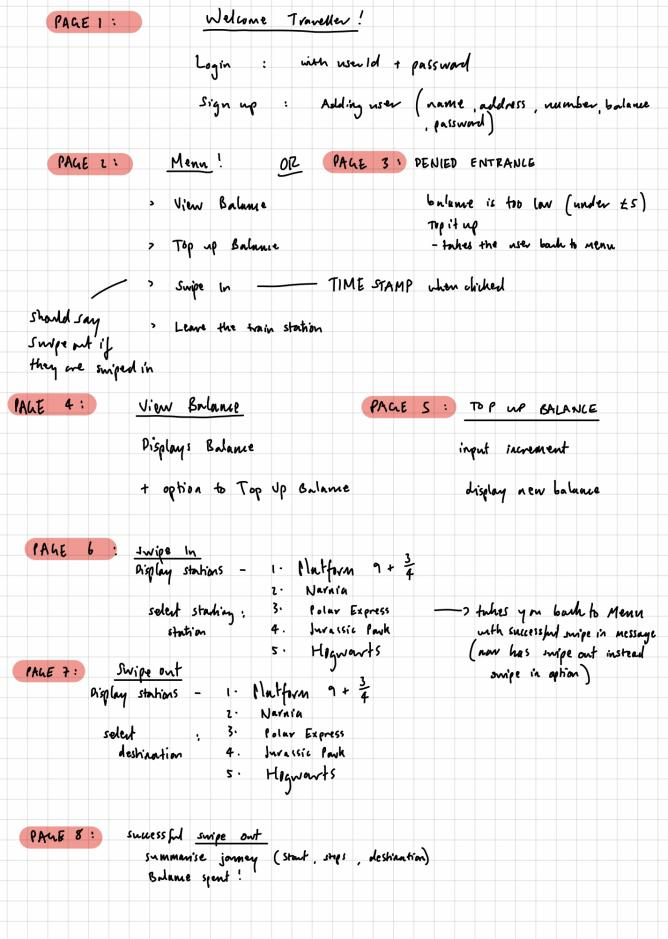 PAGE 1 :
Welcome Traveller !
Login : with userId + password
Sign up : Adding user ( name , address , number, balance
, password )
PAGE 2 : Menu ! OR PAGE 3 : DENIED ENTRANCE
> View Balance
balance is too low ( under £5 )
Top it up
> Top up Balance
- takes the user back to menu
> Swipe In —— TIME STAMP when clicked
should say
swipe out if
they are swiped in
> Leave the train station
PAGE 4 : View Balance
PAGE 5 : TOP UP BALANCE
Displays Balance
input increment
+ option to Top Up Balance
display new balance
PAGE 6 : Swipe In
Display stations - 1. Platform 9 + 3/4
2. Narnia
select starting : 3. Polar Express
station 4. Jurassic Park
5. Hogwarts
—> takes you back to Menu
with successful swipe in message
( now has swipe out instead
swipe in option )
PAGE 7 : Swipe out
Display stations - 1. Platform 9 + 3/4
2. Narnia
select : 3. Polar Express
destination 4. Jurassic Park
5. Hogwarts
PAGE 8 : successful swipe out
summarise jorney ( start , stops , destination )
Balance spent !